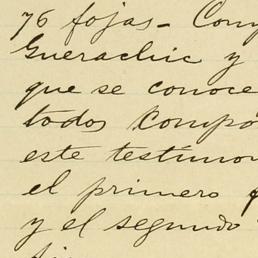 76 fojas - Com
Guerachic y
que se conoce
todos compo
este testimon
el primero
y el segundo